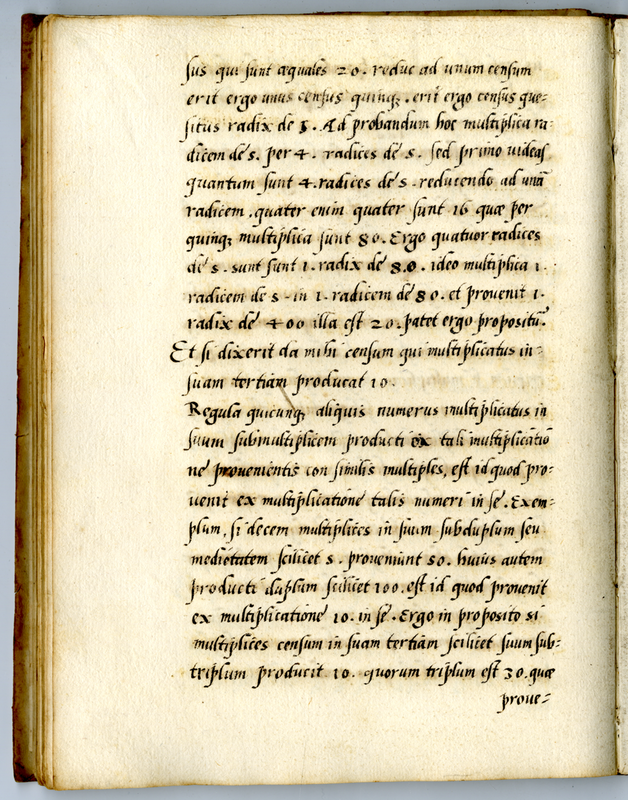 sus qui sunt æquales 20. reduc ad unum censum
erit ergo unus census quinq; . erit ergo census que-
situs radix de 5. Ad probandum hoc multiplica ra-
dicem de 5. per 4. radices de 5. sed primo uideas
quantum sunt 4. radices de 5. reducendo ad unā
radicem. quater enim quater sunt 16 quæ per
quinq; multiplica sunt 80. Ergo quatuor radices
de 5. sunt sunt 1. radix de 80. ideo multiplica 1.
radicem de 5. in 1. radicem de 80. et prouenit 1.
radix de 400 illa est 20. patet ergo propositū.
Et si dixerit da mihi censum qui multiplicatus in-
suam tertiam producat 10.
Regula quicunq; aliquis numerus multiplicatus in
suum submultiplicem producti ex tali multiplicatio
ne prouenientis con similis multiples, est id quod pro-
uenit ex multiplicatione talis numeri in se. Exem-
plum, si decem multiplices in suum subduplum seu
medietatem scilicet 5. proueniunt 50. huius autem
producti duplum scilicet 100. est id quod prouenit
ex multiplicatione 10. in se. Ergo in proposito si
multiplices censum in suam tertiam scilicet suum sub-
triplum producit 10. quorum triplum est 30. quæ
proue-